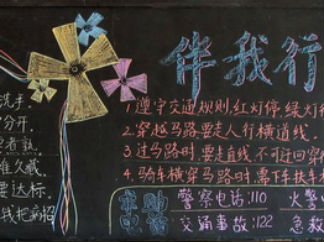 洗手
分开
久藏
要达标
伴我行
1.遵守交通规则,红灯停,绿灯
2.穿越马路要走人行横道线.
3.过马路时,要走直线,不可迂回穿
4.骑车横穿马路时要下车扶车
求助电话
警察电话:110
火警
交通事故:122
急救